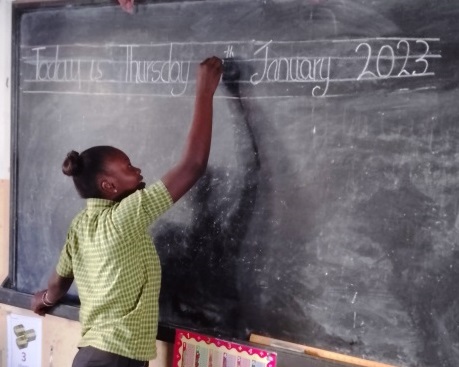 Today is Thursday th January 2023
3